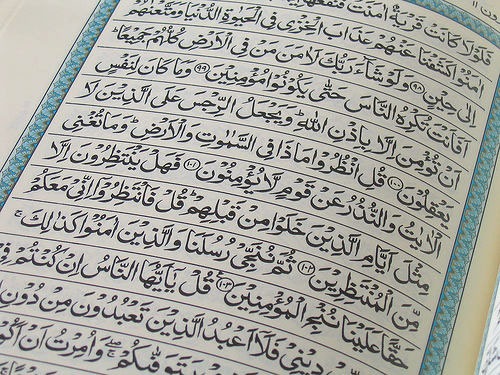 فَلَوْلَا كَانَتْ قَرْيَةٌ اٰمَنَتْ فَنَفَعَهَا
اٰمَنُوْا كَشَفْنَا عَنْهُمْ عَذَابَ الْخِزْيِ فِي الْحَيٰوةِ الدُّنْيَا وَمَتَّعْنٰهُمْ
اِلٰى حِيْنٍ ﴿٩٨﴾ وَلَوْ شَآءَ رَبُّكَ لَاٰمَنَ مَنْ فِي الْاَرْضِ كُلُّهُمْ جَمِيْعًا ؕ
اَفَاَنْتَ تُكْرِهُ النَّاسَ حَتّٰى يَكُوْنُوْا مُؤْمِنِيْنَ ﴿٩٩﴾ وَمَا كَانَ لِنَفْسٍ
اَنْ تُؤْمِنَ اِلَّا بِاِذْنِ اللّٰهِ ؕ وَيَجْعَلُ الرِّجْسَ عَلَى الَّذِيْنَ لَا
يَعْقِلُوْنَ ﴿١٠٠﴾ قُلِ انْظُرُوْا مَاذَا فِي السَّمٰوٰتِ وَالْاَرْضِ ؕ وَمَا تُغْنِى
الْاٰيٰتُ وَالنُّذُرُ عَنْ قَوْمٍ لَّا يُؤْمِنُوْنَ ﴿١٠١﴾ فَهَلْ يَنْتَظِرُوْنَ اِلَّا
مِثْلَ اَيَّامِ الَّذِيْنَ خَلَوْا مِنْ قَبْلِهِمْ ؕ قُلْ فَانْتَظِرُوْٓا اِنِّيْ مَعَكُمْ
مِّنَ الْمُنْتَظِرِيْنَ ﴿١٠٢﴾ ثُمَّ نُنَجِّيْ رُسُلَنَا وَالَّذِيْنَ اٰمَنُوْا كَذٰلِكَ ۚ
حَقًّا عَلَيْنَا نُنْجِ الْمُؤْمِنِيْنَ ﴿١٠٣﴾ قُلْ يٰٓاَيُّهَا النَّاسُ اِنْ كُنْتُمْ فِيْ
دِيْنِيْ فَلَآ اَعْبُدُ الَّذِيْنَ تَعْبُدُوْنَ مِنْ دُوْنِ
يَتَوَفّٰىكُمْ ۖ وَاُمِرْتُ اَنْ اَكُوْنَ